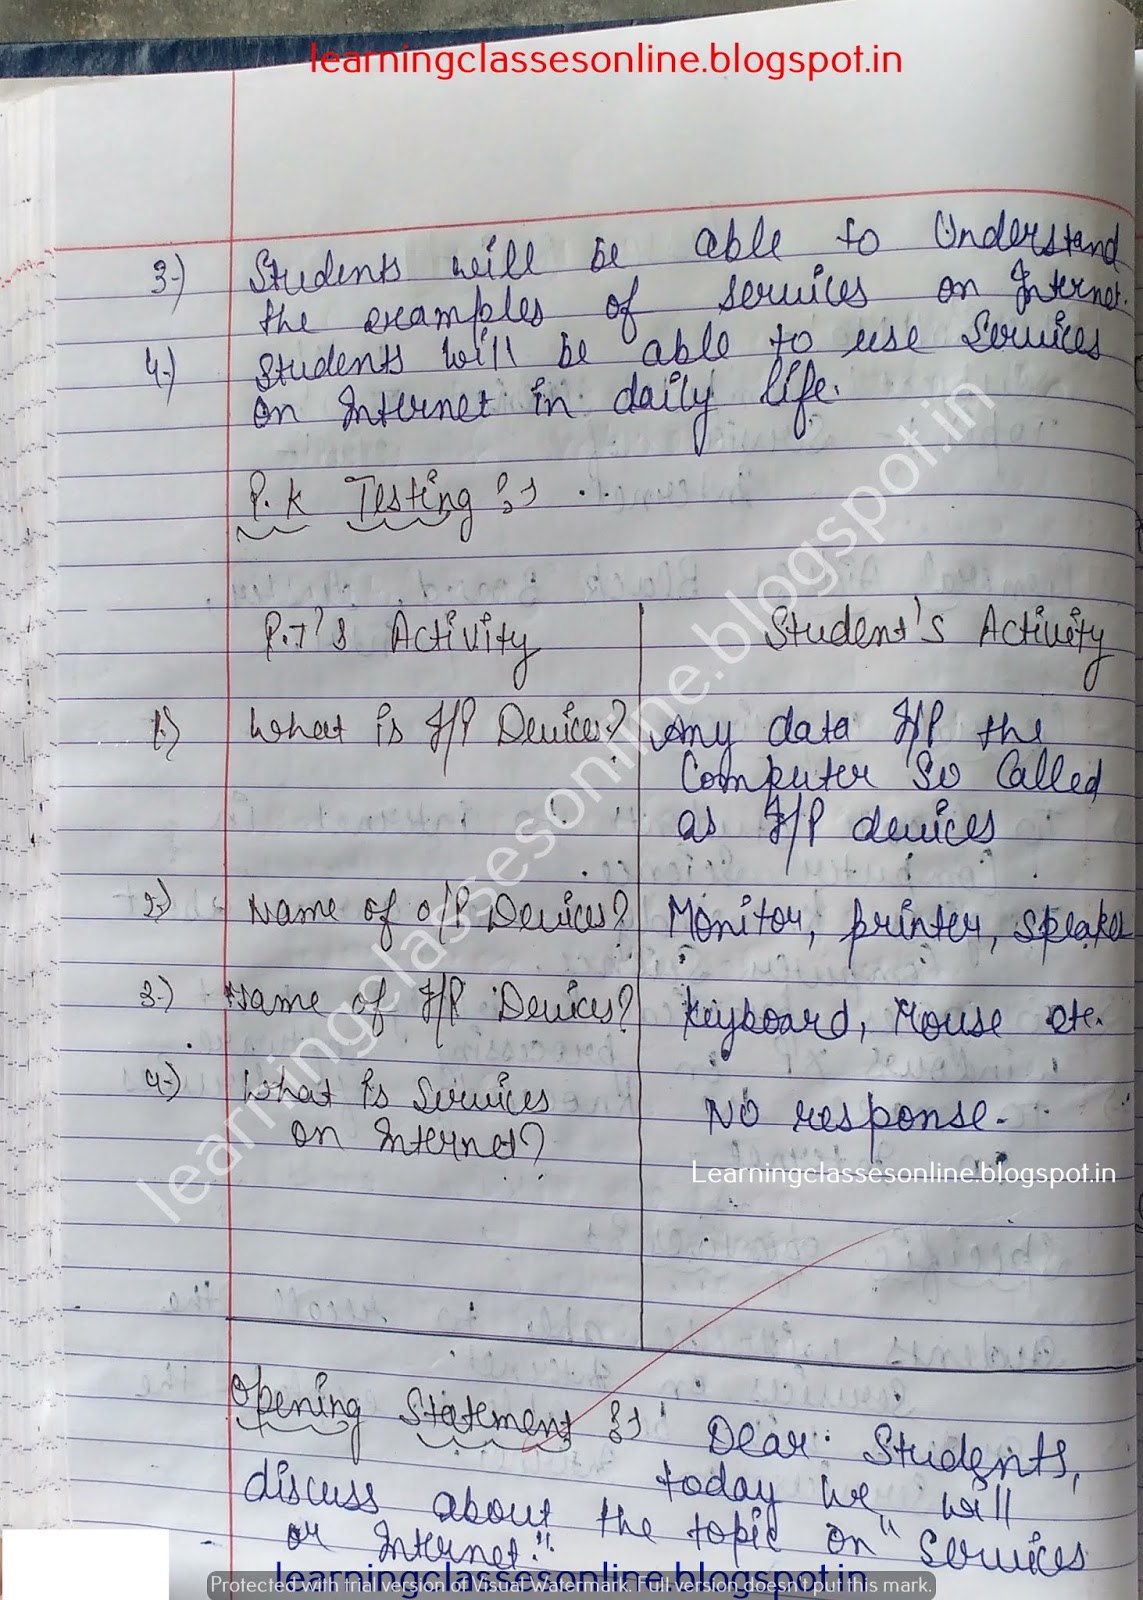 learningclassesonline.blogspot.in
3.) Students will be able to Understand
the examples of services on Internet.
4.) Students will be able to use Services
on Internet in daily life.
P.K Testing :-
P.T's Activity
Student's Activity
1.) What is I/P Devices?
Any data I/P the
Computer So Called
as I/P devices
2.) Name of O/P Devices?
Monitor, printer, speaker
3.) Name of I/P Devices?
Keyboard, Mouse etc.
4.) What is Services
on Internet?
No response.
Learningclassesonline.blogspot.in
learningclassesonline.blogspot.in
Opening Statement :- Dear Students,
today we will
discuss about the topic on "Services
or Internet."
learningclassesonline.blogspot.in
Protected with trial version of Visual Watermark. Full version doesn't put this mark.